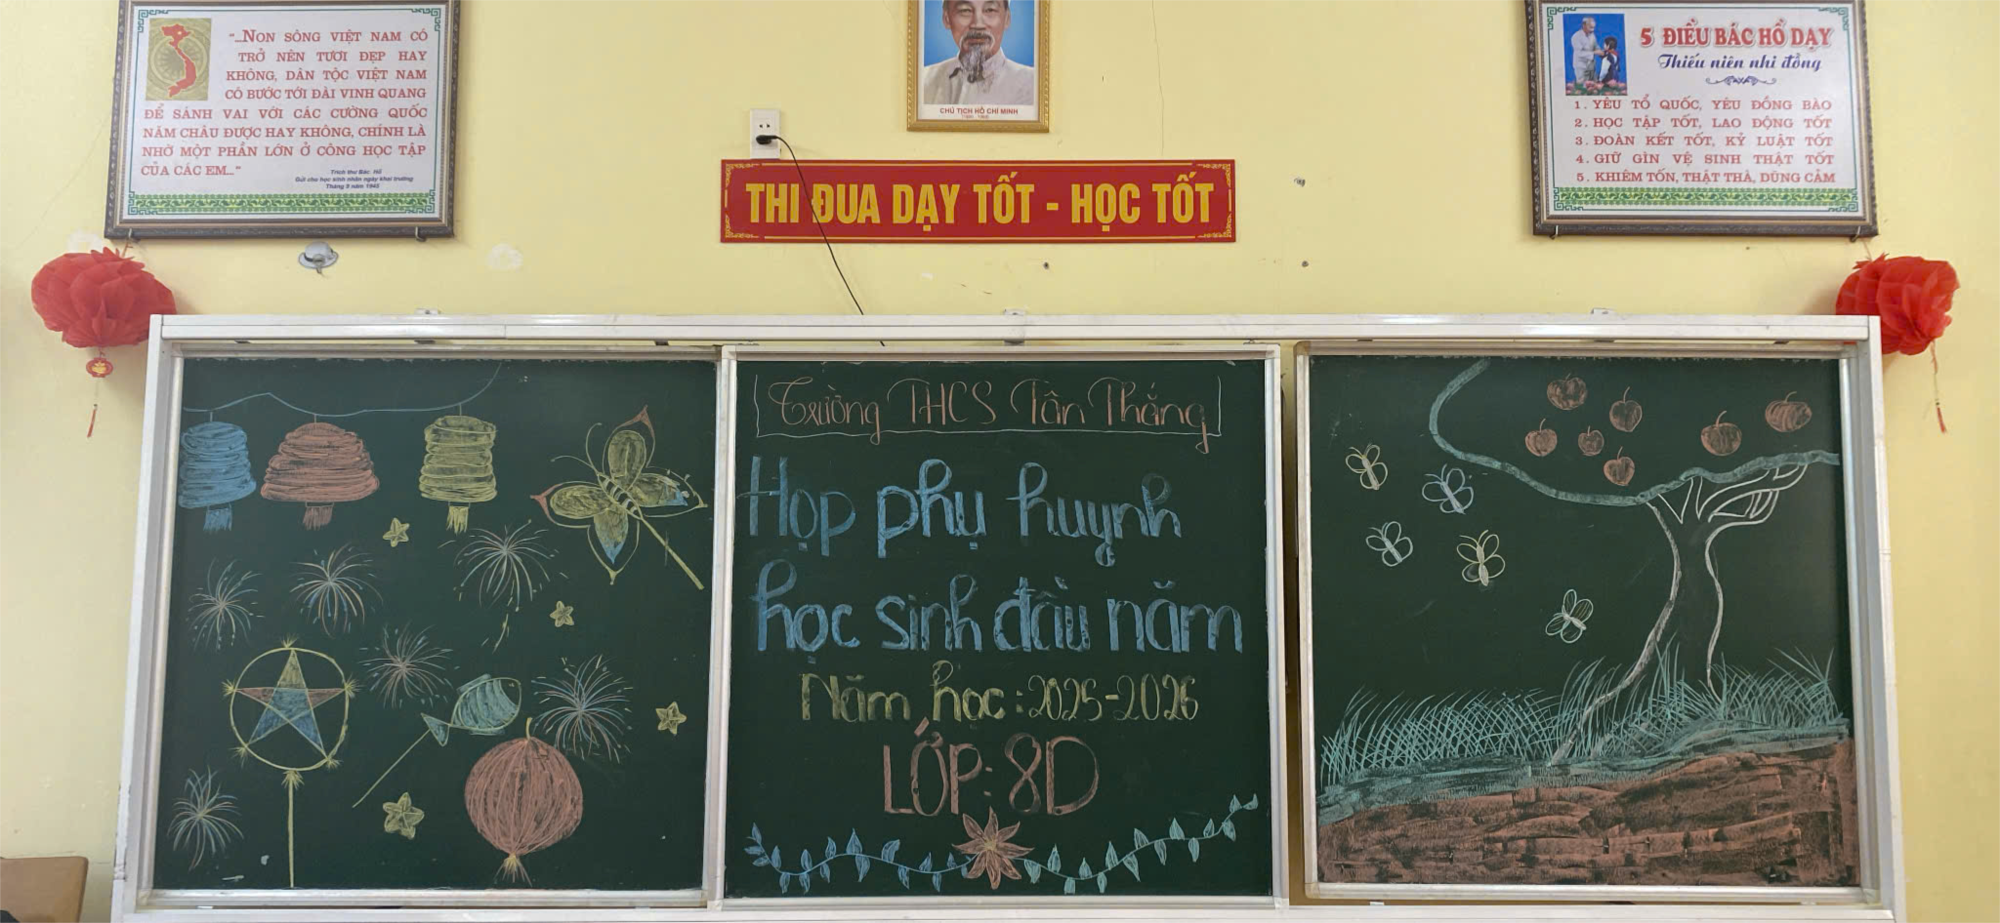 "...NON SÔNG VIỆT NAM CÓ
TRỞ NÊN TƯƠI ĐẸP HAY
KHÔNG, DÂN TỘC VIỆT NAM
CÓ BƯỚC TỚI ĐÀI VINH QUANG
ĐỂ SÁNH VAI VỚI CÁC CƯỜNG QUỐC
NĂM CHÂU ĐƯỢC HAY KHÔNG, CHÍNH LÀ
NHỜ MỘT PHẦN LỚN Ở CÔNG HỌC TẬP
CỦA CÁC EM..."
Trích thư Bác Hồ
Gửi cho học sinh nhân ngày khai trường
Tháng 9 năm 1945
CHỦ TỊCH HỒ CHÍ MINH
THI ĐUA DẠY TỐT - HỌC TỐT
5 ĐIỀU BÁC HỒ DẠY
Thiếu niên nhi đồng
1. YÊU TỔ QUỐC, YÊU ĐỒNG BÀO
2. HỌC TẬP TỐT, LAO ĐỘNG TỐT
3. ĐOÀN KẾT TỐT, KỶ LUẬT TỐT
4. GIỮ GÌN VỆ SINH THẬT TỐT
5. KHIÊM TỐN, THẬT THÀ, DŨNG CẢM
Trường THCS Tân Thắng
Họp phụ huynh
học sinh đầu năm
Năm học: 2025-2026
LỚP: 8D